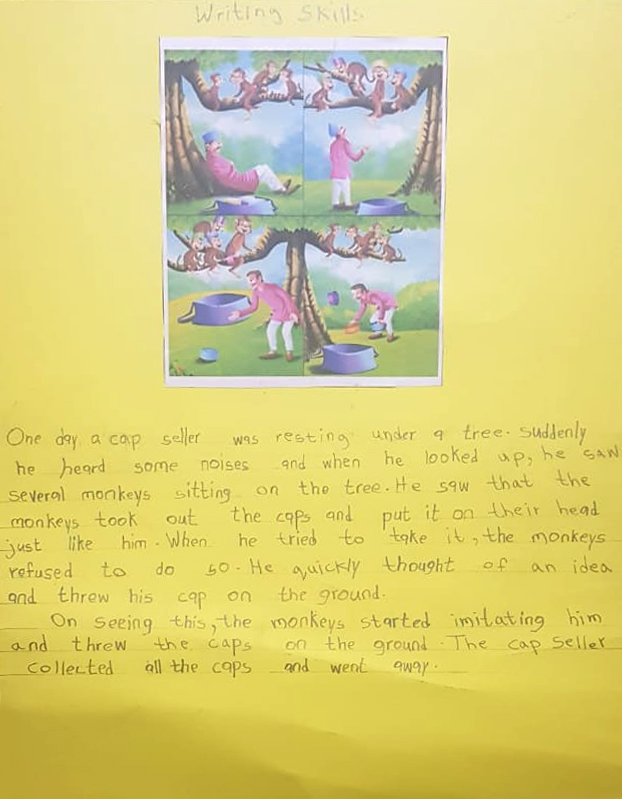 Writing Skills
One day a cap seller was resting under a tree. Suddenly
he heard some noises and when he looked up, he saw
several monkeys sitting on the tree. He saw that the
monkeys took out the caps and put it on their head
just like him. When he tried to take it, the monkeys
refused to do so. He quickly thought of an idea
and threw his cap on the ground.
On seeing this, the monkeys started imitating him
and threw the caps on the ground. The cap seller
collected all the caps and went away.